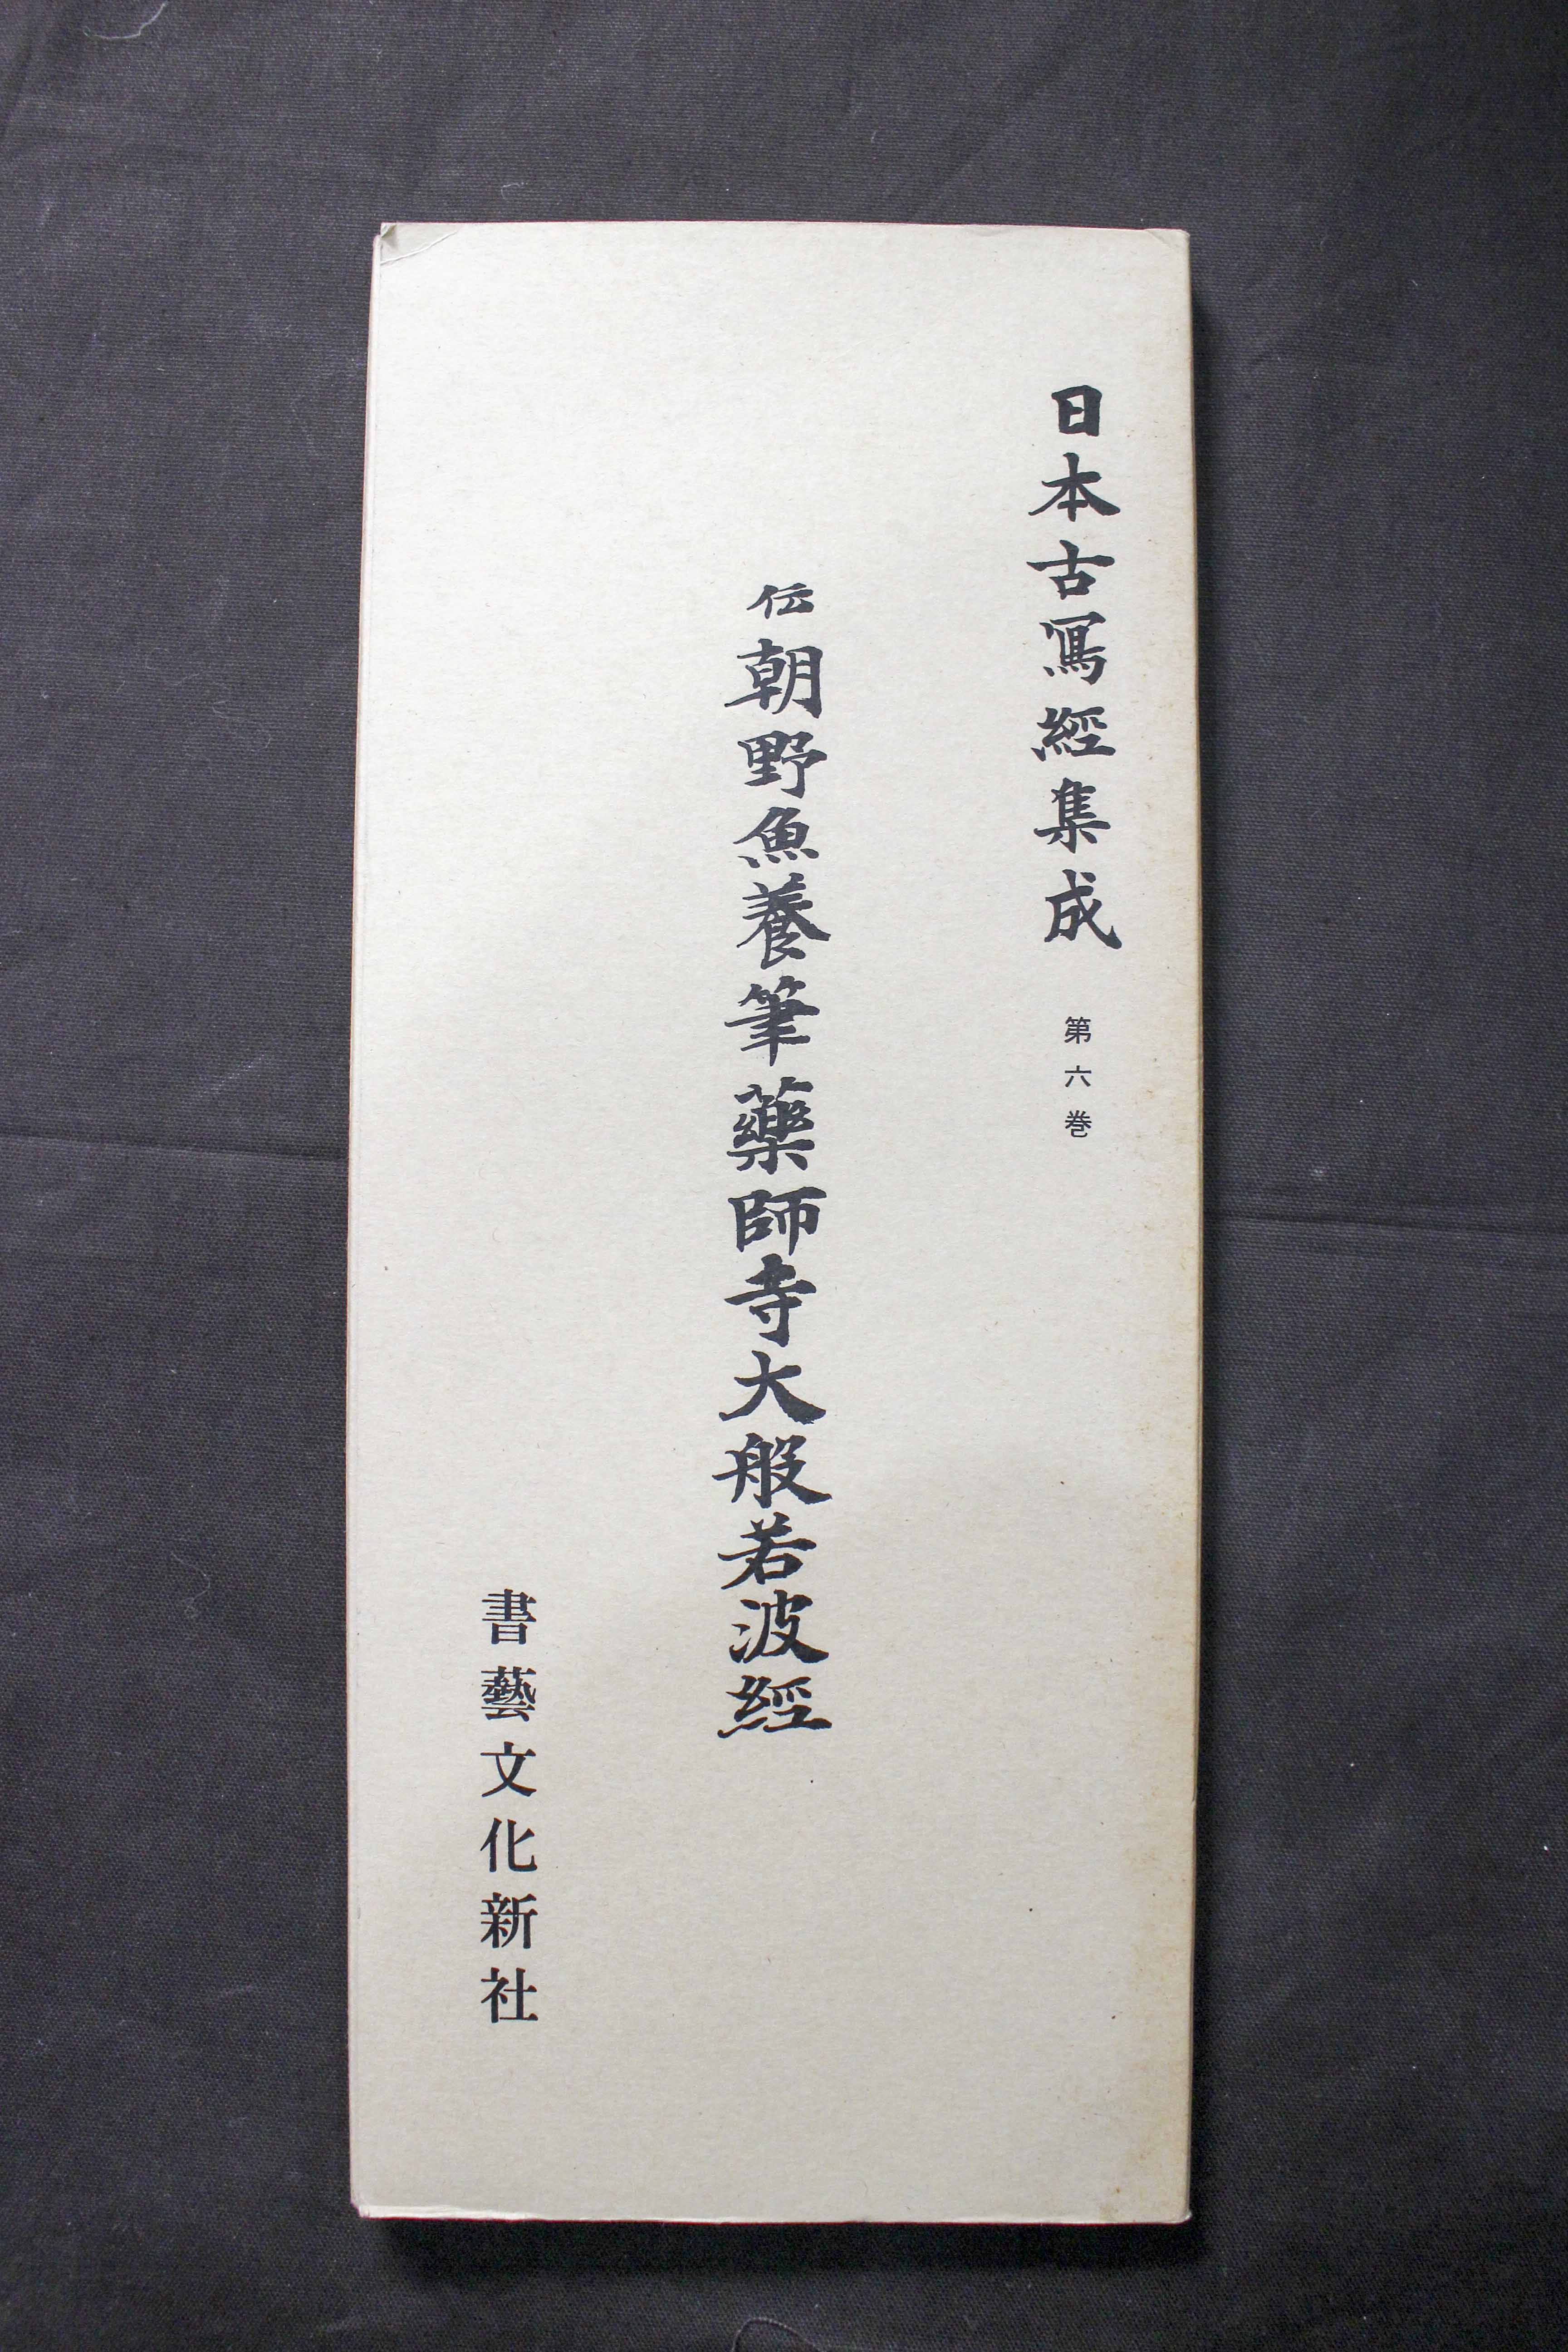 日本古寫經集成 第六巻
伝朝野魚養筆藥師寺大般若波經
書藝文化新社